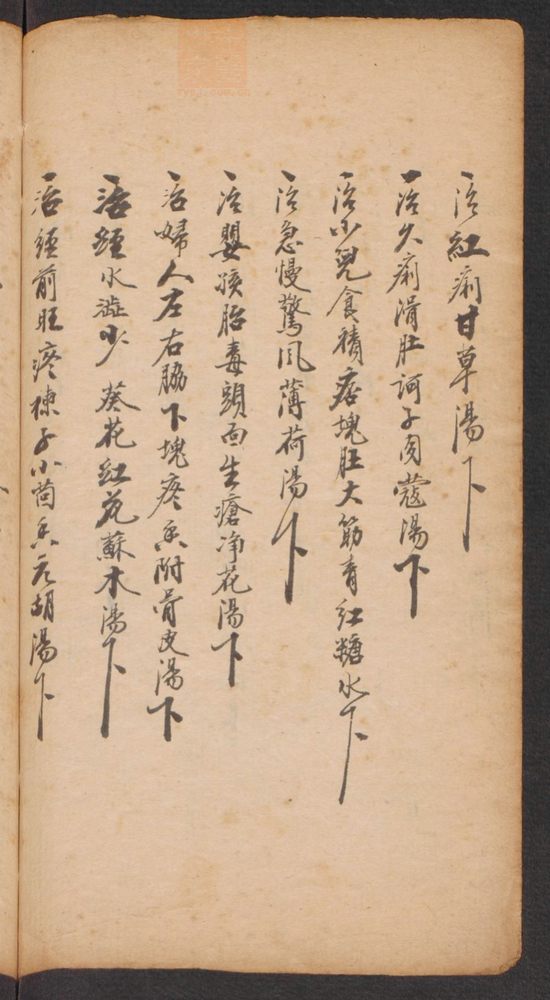 治紅痢甘草湯下
治久痢滑肚訶子肉蔻湯下
治小兒食積痞塊肚大筋青紅糖水下
治急慢驚風薄荷湯下
治嬰孩胎毒頭面生瘡净花湯下
治婦人左右脇下塊疼香附青皮湯下
治經水澁少葵花紅花蘇木湯下
治經前肚疼楝子小茴香元胡湯下